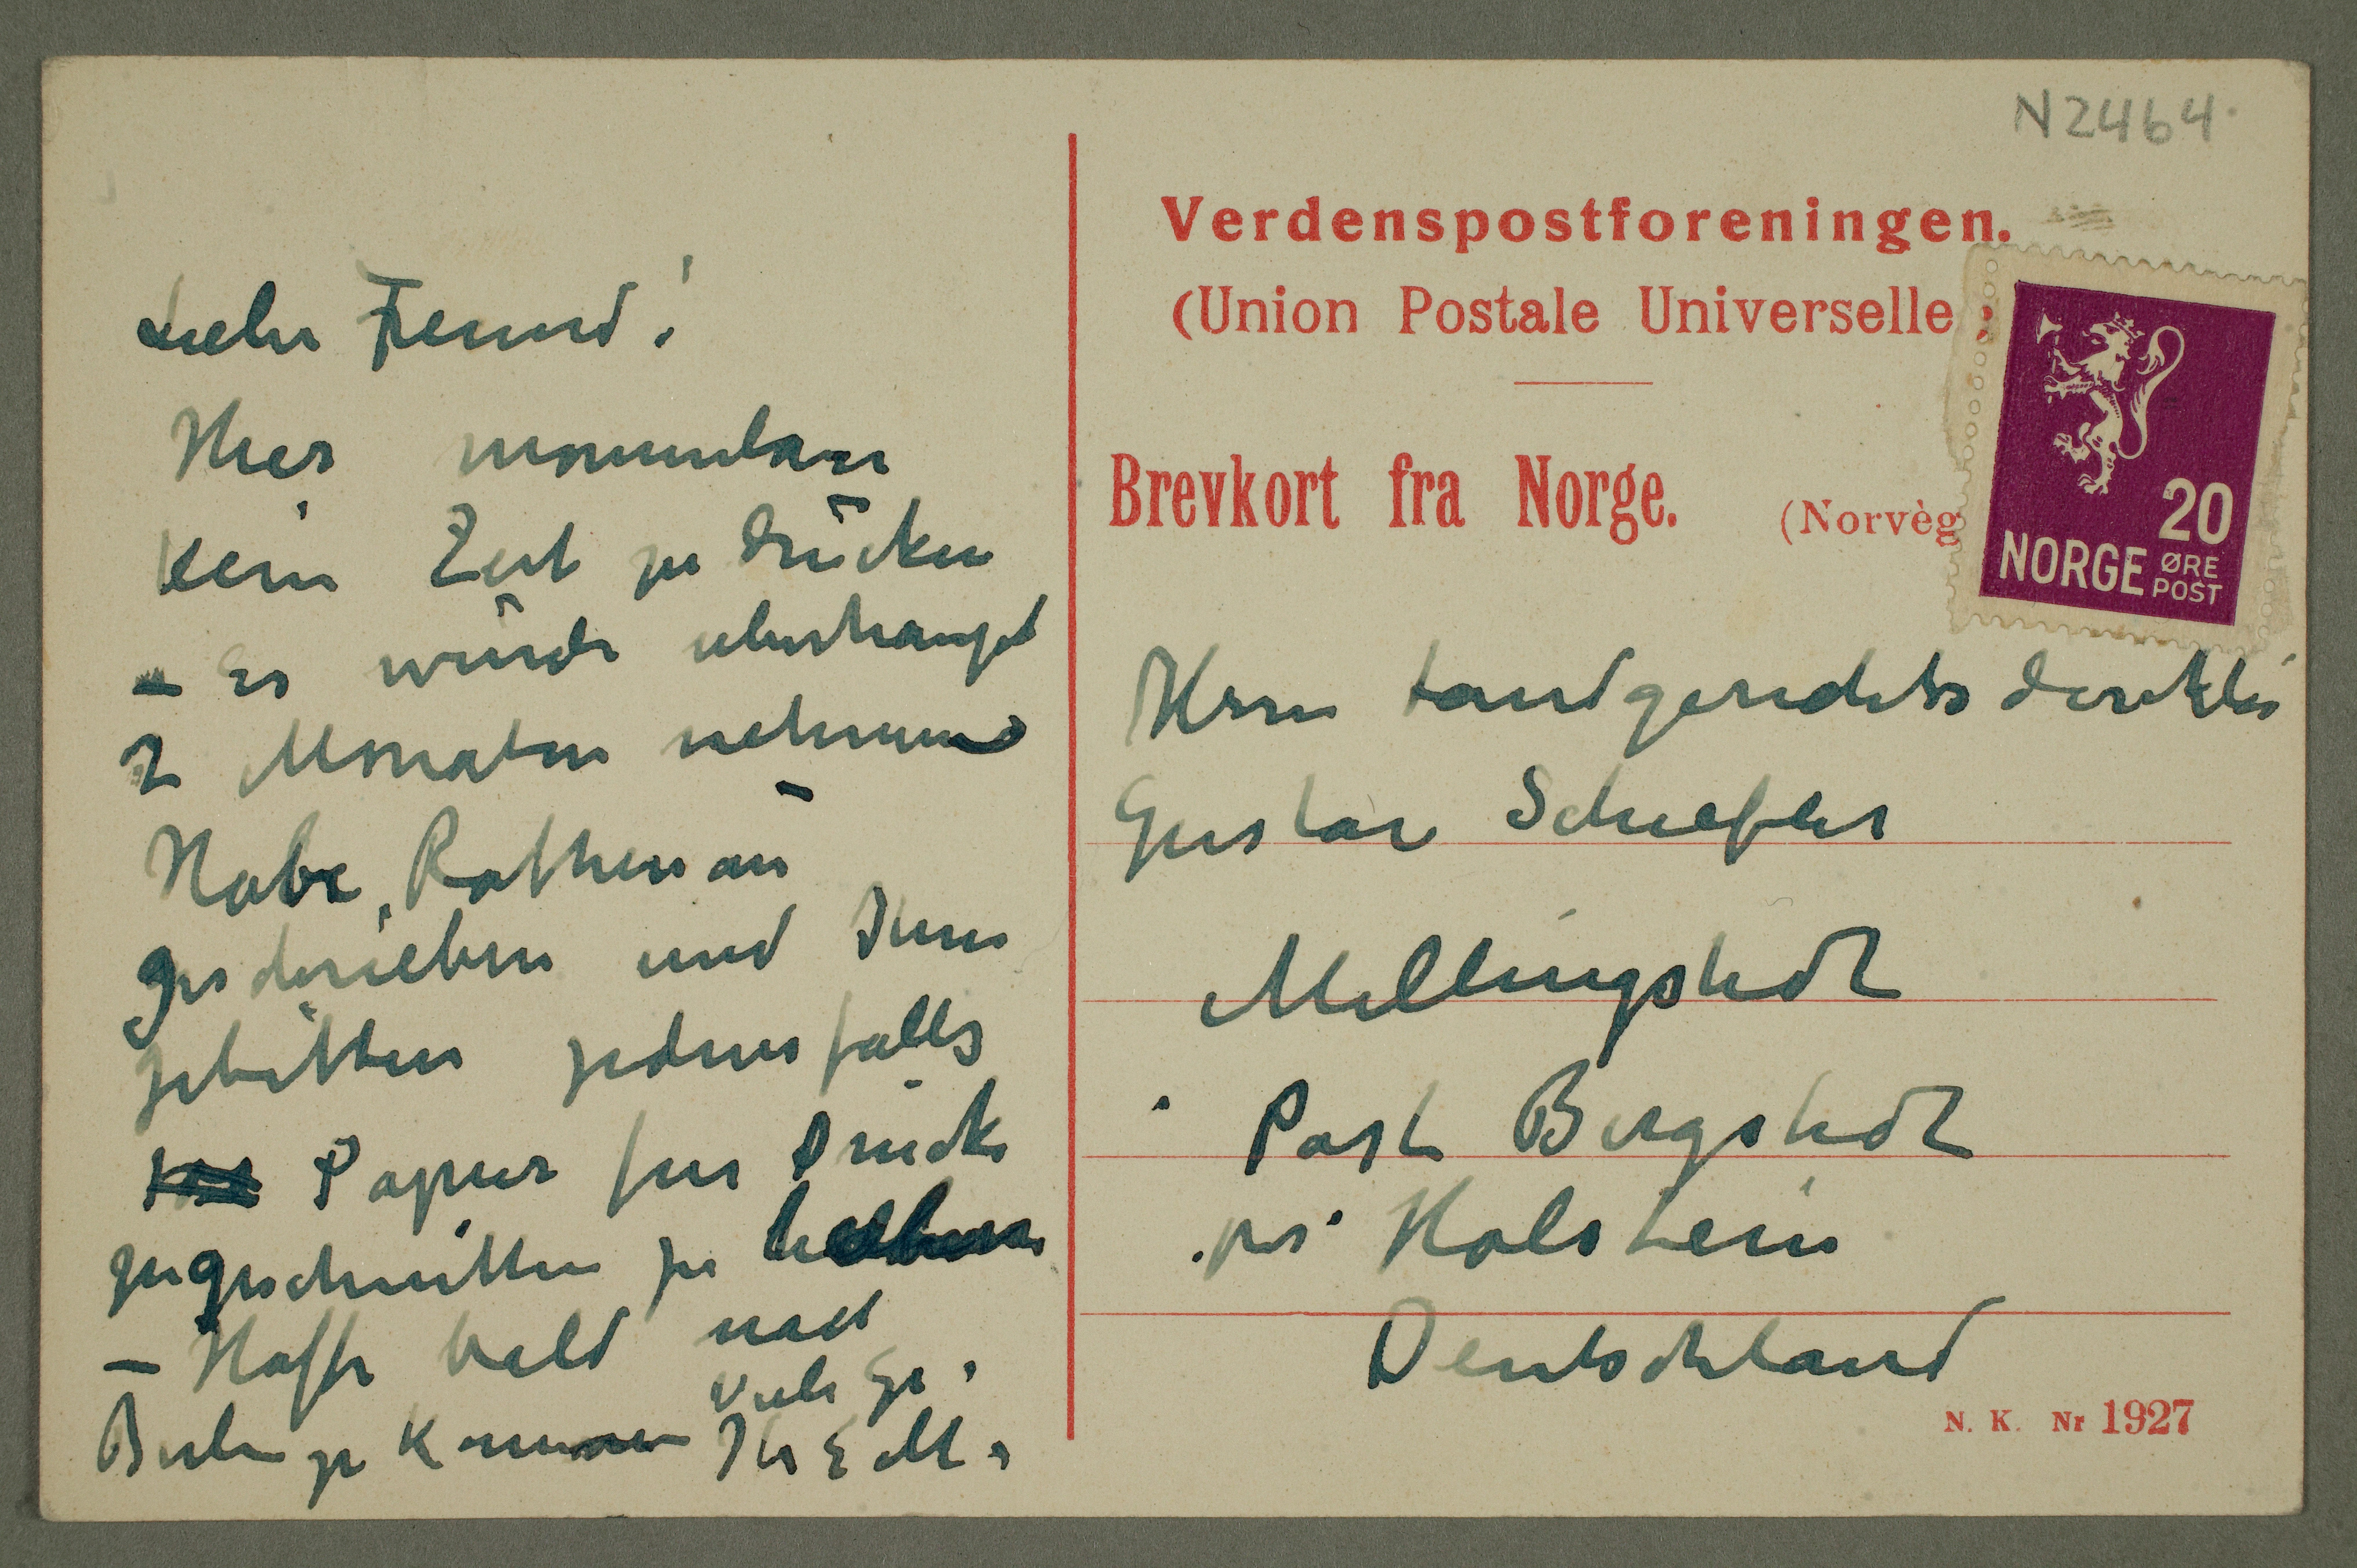 Lieber Freund!
Hier momentan
kein Zeit zu drücken
– Es würde uberhaupt
2 Monaten nehmen
Habe Rathenau
geschrieben und Ihm
gebitten jedenfalls
Papier fur Drücke
zugeschnitten zu
– Hoffe bald nach
Berlin zu Kommen
Viele Gr.
Ihr E M.
N2464
Verdenspostforeningen.
(Union Postale Universelle)
Brevkort fra Norge. (Norvèg
20
NORGE ØRE
POST
Herrn Landgerichtsdirektor
Gustav Schiefler
Mellingstedt
Post Bergstedt
pr. Holstein
Deutschland
N. K. Nr 1927